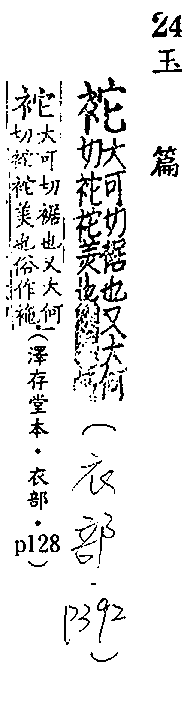 24 玉篇
袉
大可切裾也又大何
切袉袉美也
(衣部·p392)
袉
大可切裾也又大何
切袉袉美也俗作袘
(澤存堂本·衣部·p128)